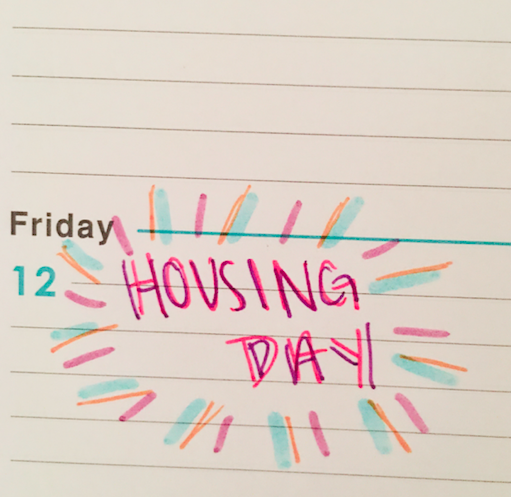 Friday
12 HOUSING
DAY